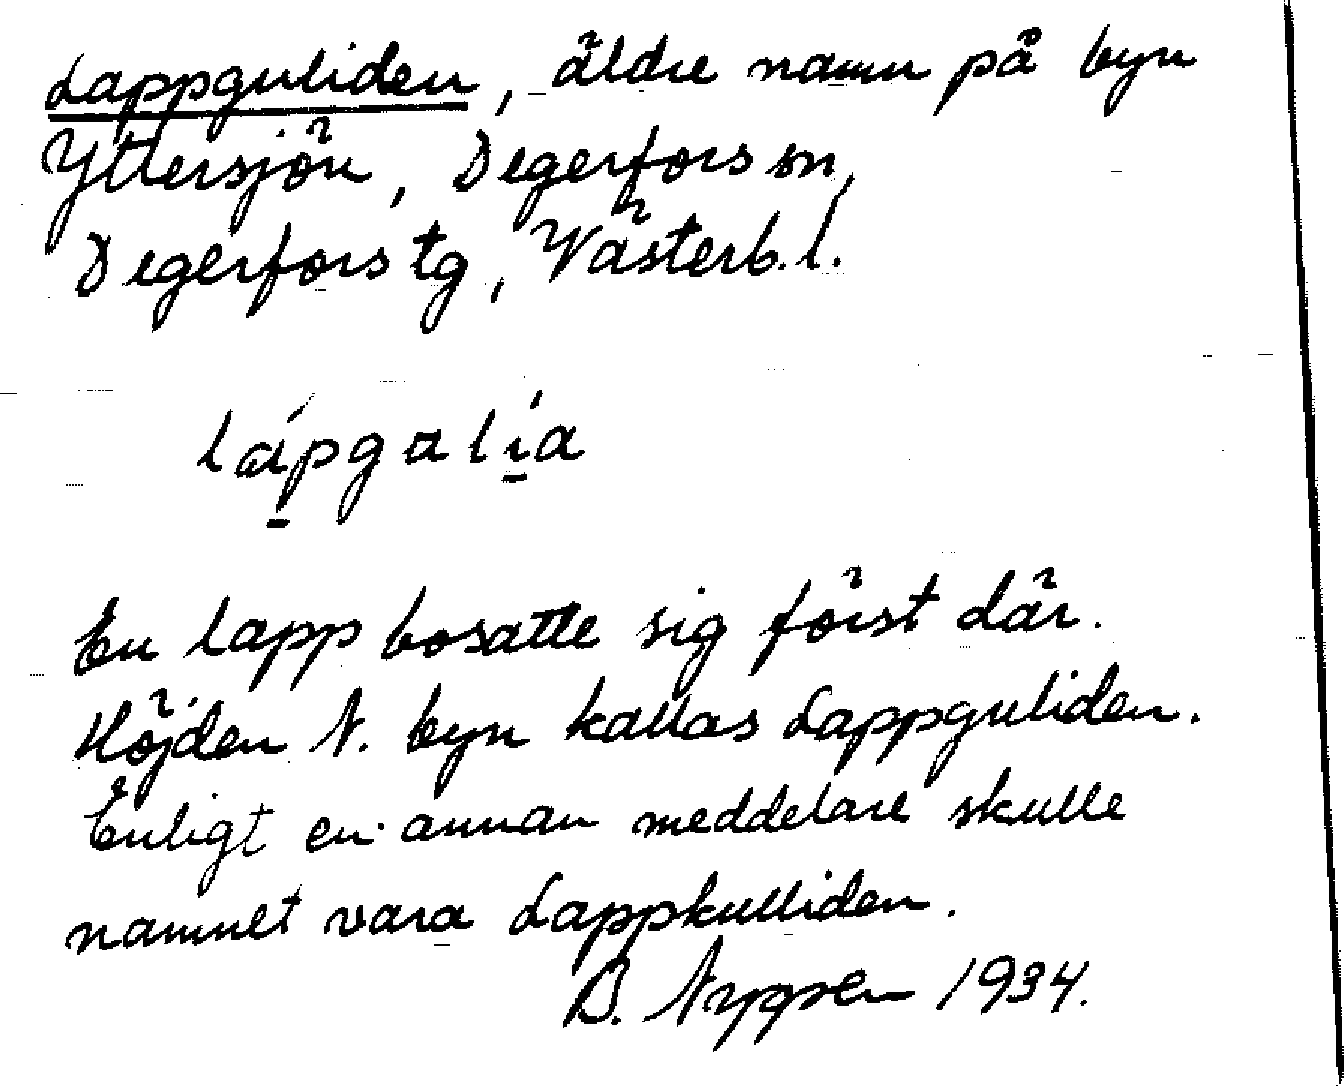 Lappguliden, äldre namn på byn
Yttersjön, Degerfors sn,
Degerfors tg, Västerb. l.
lápgalía
En lapp bosatte sig först där.
Höjden N. byn kallas Lappguliden.
Enligt en annan meddelare skulle
namnet vara Lappkulliden.
B. Nygren 1934.